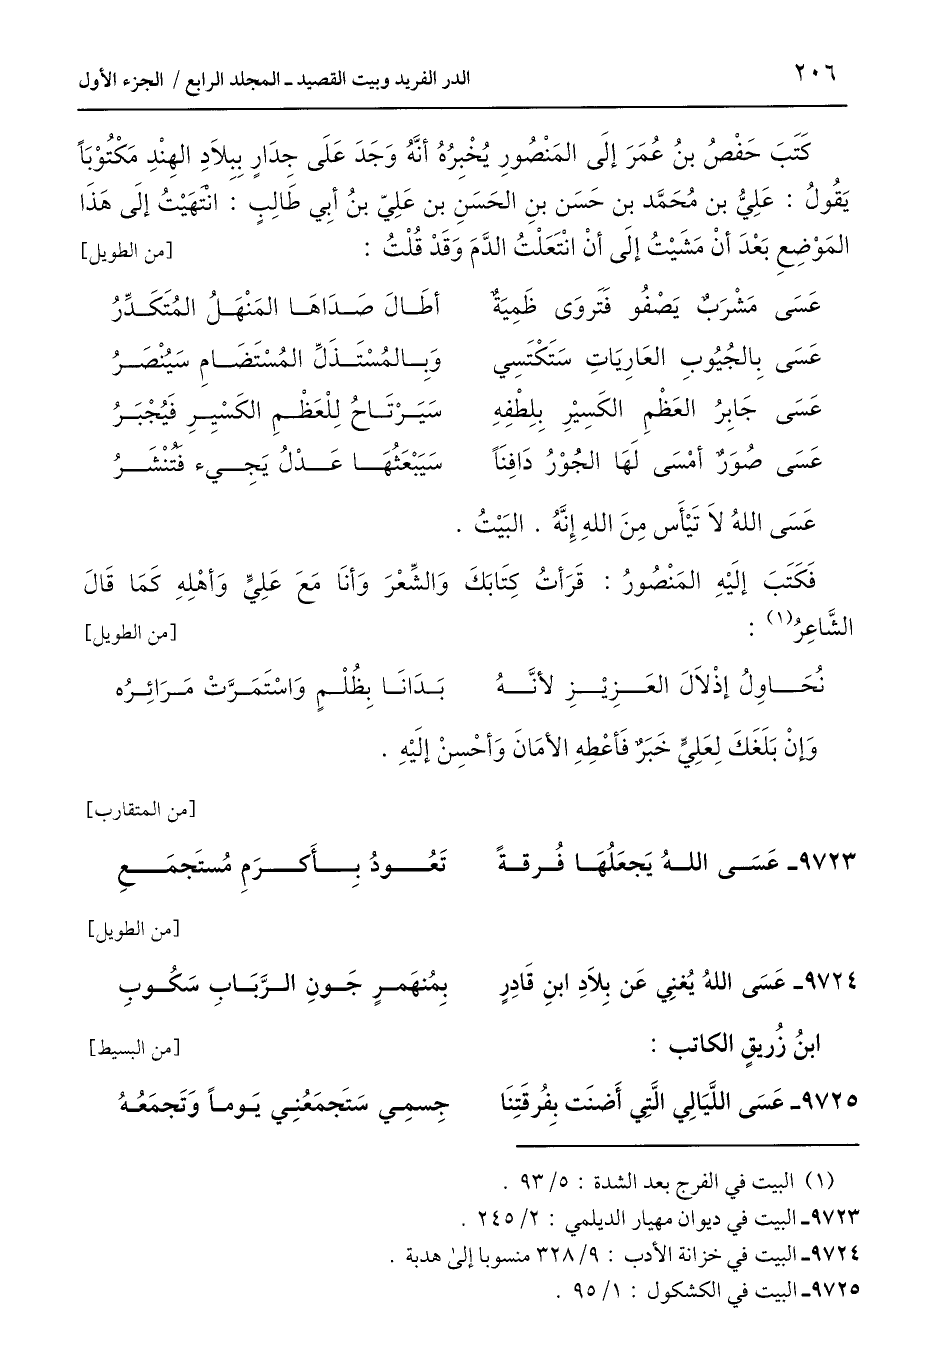 ٢٠٦ الدر الفريد وبيت القصيد ـ المجلد الرابع / الجزء الأول
كَتَبَ حَفْصُ بنُ عُمَرَ إلَى المَنْصُورِ يُخْبِرُهُ أنَّهُ وَجَدَ عَلَى جِدَارٍ بِبِلَادِ الهِنْدِ مَكْتُوْبَاً
يَقُولُ : عَلِيُّ بن مُحَمَّد بن حَسَن بنِ الحَسَنِ بن عَلِيّ بنُ أبي طَالِبٍ : انْتَهَيْتُ إلَى هَذَا
المَوْضِعِ بَعْدَ أنْ مَشَيْتُ إلَى أنْ انْتَعَلْتُ الدَّمَ وَقَدْ قُلْتُ : [من الطويل]
عَسَى مَشْرَبٌ يَصْفُو فَتَروَى ظَمِيَةٌ أطَالَ صَدَاهَا المَنْهَلُ المُتَكَدِّرُ
عَسَى بِالجُيُوبِ العَارِيَاتِ سَتَكْتَسِي وَبِالمُسْتَذَلِّ المُسْتَضَامِ سَيُنْصَرُ
عَسَى جَابِرُ العَظْمِ الكَسِيْرِ بِلِطْفِهِ سَيَرْتَاحُ لِلْعَظْمِ الكَسْيِرِ فَيُجْبَرُ
عَسَى صُوَرٌ أمْسَى لَهَا الجُوْرُ دَافِنَاً سَيَبْعَثُهَا عَدْلُ يَجِيء فَتُنْشَرُ
عَسَى اللهُ لاَ تَيْأَس مِنَ اللهِ إنَّهُ . البَيْتُ .
فَكَتَبَ إلَيْهِ المَنْصُورُ : قَرَأتُ كِتَابَكَ وَالشِّعْرَ وَأنَا مَعَ عَلِيٍّ وَأهْلِهِ كَمَا قَالَ
الشَّاعِرُ(١) : [من الطويل]
نُحَاوِلُ إذْلَالَ العَزِيْزِ لأنَّهُ بَدَانَا بِظُلْمٍ وَاسْتَمَرَّتْ مَرَائِرُه
وَإنْ بَلَغَكَ لِعَلِيٍّ خَبَرٌ فَأعْطِهِ الأمَانَ وَأحْسِنْ إلَيْهِ .
[من المتقارب]
٩٧٢٣ـ عَسَى اللهُ يَجعَلُهَا فُرقةً تَعُودُ بِأَكرَمِ مُستَجمَعِ
[من الطويل]
٩٧٢٤ـ عَسَى اللهُ يُغنِي عَن بِلاَدِ ابنِ قَادِرٍ بِمُنهَمرٍ جَونِ الرَّبَابِ سَكُوبِ
ابنُ زُريقٍ الكاتب : [من البسيط]
٩٧٢٥ـ عَسَى اللَّيَالِي الَّتِي أَضنَت بِفُرقَتِنَا جِسمِي سَتَجمَعُنِي يَوماً وَتَجمَعُهُ
(١) البيت في الفرج بعد الشدة : ٥/ ٩٣ .
٩٧٢٣ـ البيت في ديوان مهيار الديلمي : ٢/ ٢٤٥ .
٩٧٢٤ـ البيت في خزانة الأدب : ٩/ ٣٢٨ منسوبا إلىٰ هدبة .
٩٧٢٥ـ البيت في الكشكول : ١/ ٩٥ .